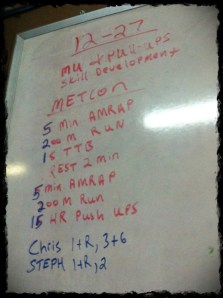 12-27
MU + PULL-UPS
Skill Development
METCON
5 Min AMRAP
200m RUN
15 TTB
REST 2 min
5 min AMRAP
200M Run
15 HR Push UPS
Chris 1+R, 3+6
STEPH 1+R, 2